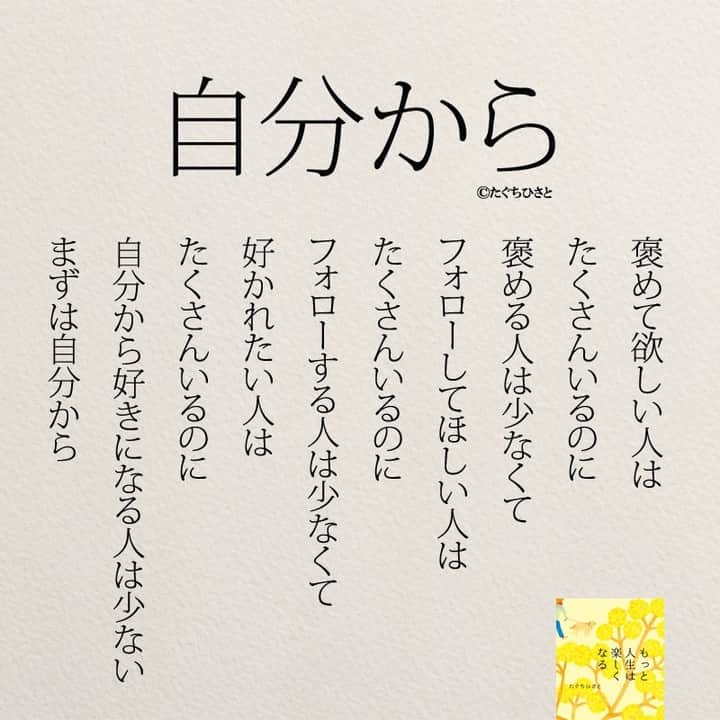 自分から
©たぐちひさと
褒めて欲しい人は
たくさんいるのに
褒める人は少なくて
フォローしてほしい人は
たくさんいるのに
フォローする人は少なくて
好かれたい人は
たくさんいるのに
自分から好きになる人は少ない
まずは自分から
もっと
人生は
楽しく
なる
たぐちひさと